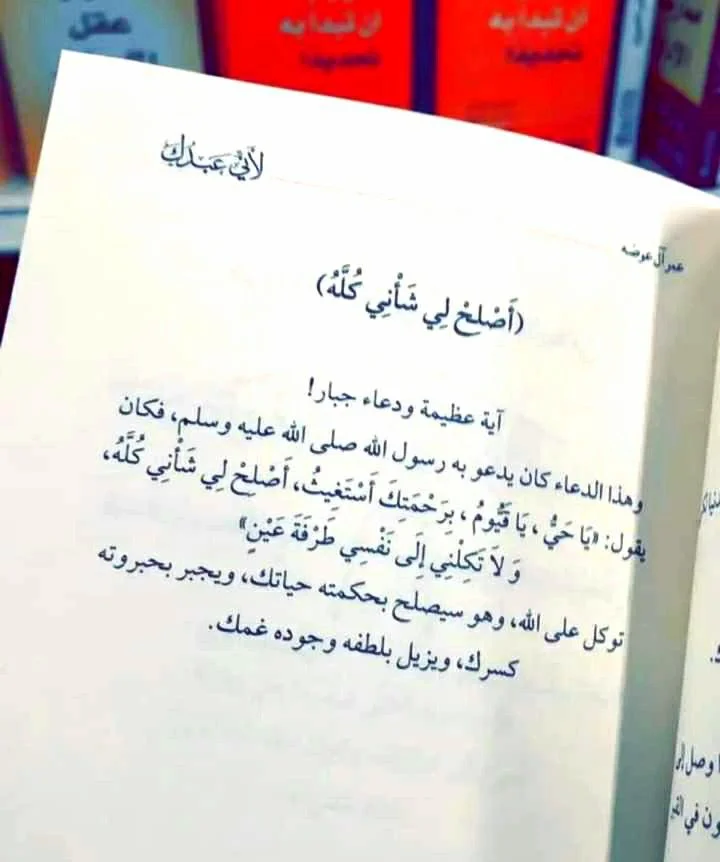 عقل
أن تبدأ به
أن تبدأ به
لأني عبدك
عمر آل عوضه
(أَصْلِحْ لِي شَأْنِي كُلَّهُ)
آية عظيمة ودعاء جبار!
وهذا الدعاء كان يدعو به رسول الله صلى الله عليه وسلم، فكان
يقول: «يَا حَيُّ ، يَا قَيُّومُ ، بِرَحْمَتِكَ أَسْتَغِيثُ، أَصْلِحْ لِي شَأْنِي كُلَّهُ،
وَ لاَ تَكِلْنِي إِلَى نَفْسِي طَرْفَةَ عَيْنٍ»
توكل على الله، وهو سيصلح بحكمته حياتك، ويجبر بجبروته
كسرك، ويزيل بلطفه وجوده غمك.
وصل إلى
ون في